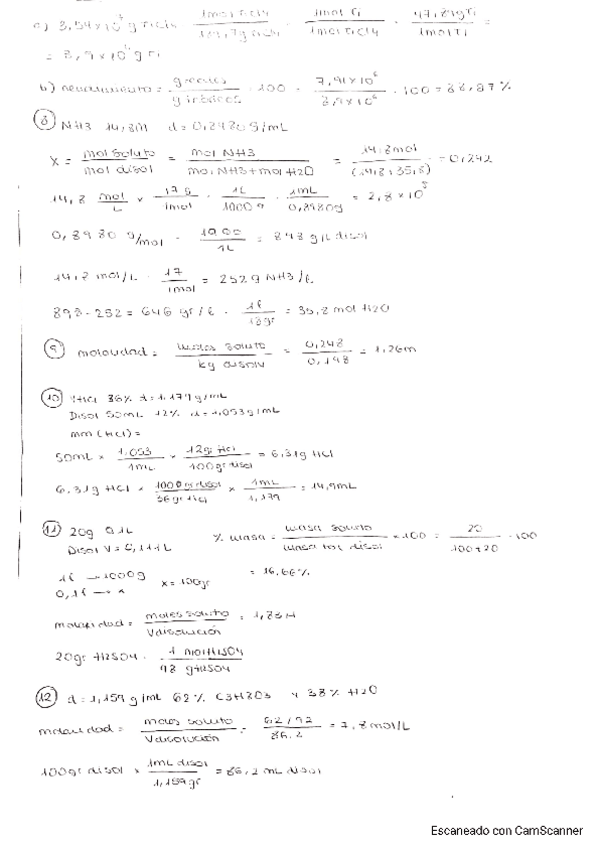 a) 3,54 x 10⁷ g TiCl4 · 1mol TiCl4 / 189,7g TiCl4 · 1mol Ti / 1mol TiCl4 · 47,87g Ti / 1mol Ti =
= 8,9 x 10⁶ g Ti
b) rendimiento = g reales / g teóricos · 100 = 7,91 x 10⁶ / 8,9 x 10⁶ · 100 = 88,87 %
8 NH3 14,8M d = 0,8980 g/mL
X = mol soluto / mol disol = mol NH3 / mol NH3 + mol H2O = 14,8mol / (14,8 + 35,8) = 0,292
14,8 mol/L x 17 g / 1mol · 1L / 1000 g · 1mL / 0,8980g = 2,8 x 10
0,8980 g/mol · 1000 / 1L = 898 g/L disol
14,8 mol/L · 17 / 1mol = 252g NH3/l
898 - 252 = 646 gr/l · 1l / 18gr = 35,8 mol H2O
9 molalidad = moles soluto / kg disolv = 0,248 / 0,198 = 1,26m
10 HCl 36% d = 1,179 g/mL
Disol 50mL 12% d = 1,053 g/mL
mm (HCl) =
50mL x 1,053 / 1mL x 12gr HCl / 100gr disol = 6,31g HCl
6,31g HCl x 100gr disol / 36gr HCl x 1mL / 1,179 = 14,9mL
11 20g 0,1L
Disol V = 0,111L
% masa = masa soluto / masa tot disol x 100 = 20 / 100+20 · 100
= 16,66%
1l → 1000g
0,1l → x
x = 100gr
molaridad = moles soluto / V disolución = 1,83M
20gr H2SO4 · 1 mol H2SO4 / 98 g H2SO4
12 d = 1,159 g/mL 62% C3H8O3 y 38% H2O
molaridad = moles soluto / V disolución = 62/92 / 86,2 = 7,8 mol/L
100gr disol x 1mL disol / 1,159gr = 86,2 mL disol
Escaneado con CamScanner